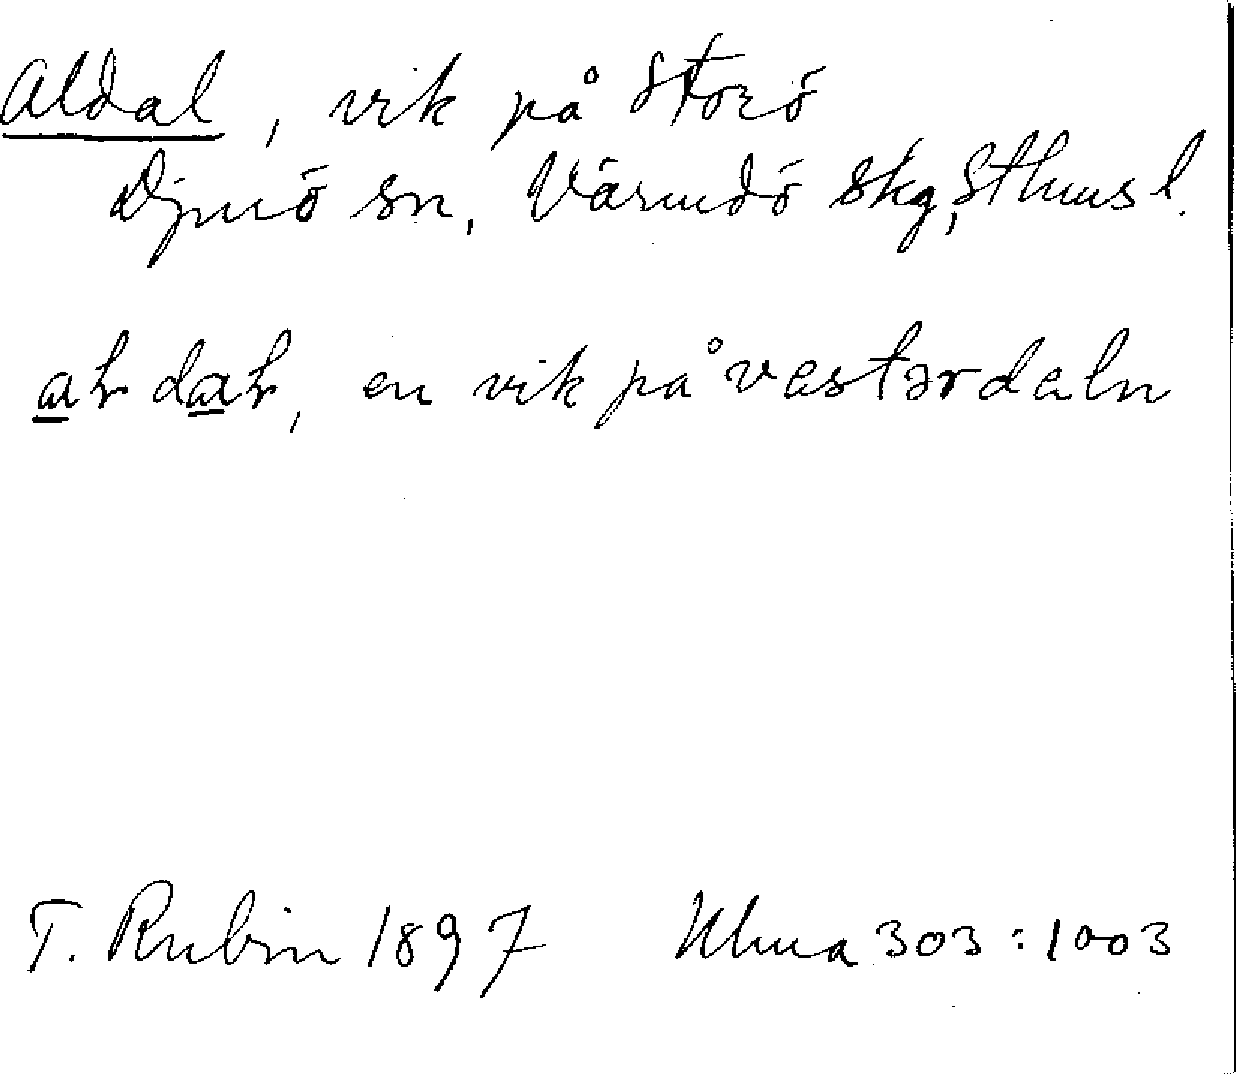 Aldal, vik på Storö
Djurö sn, Värmdö skg, Sthms l.
en vik på vastərdaln
T. Rubin 1897 Ulma 303:1003